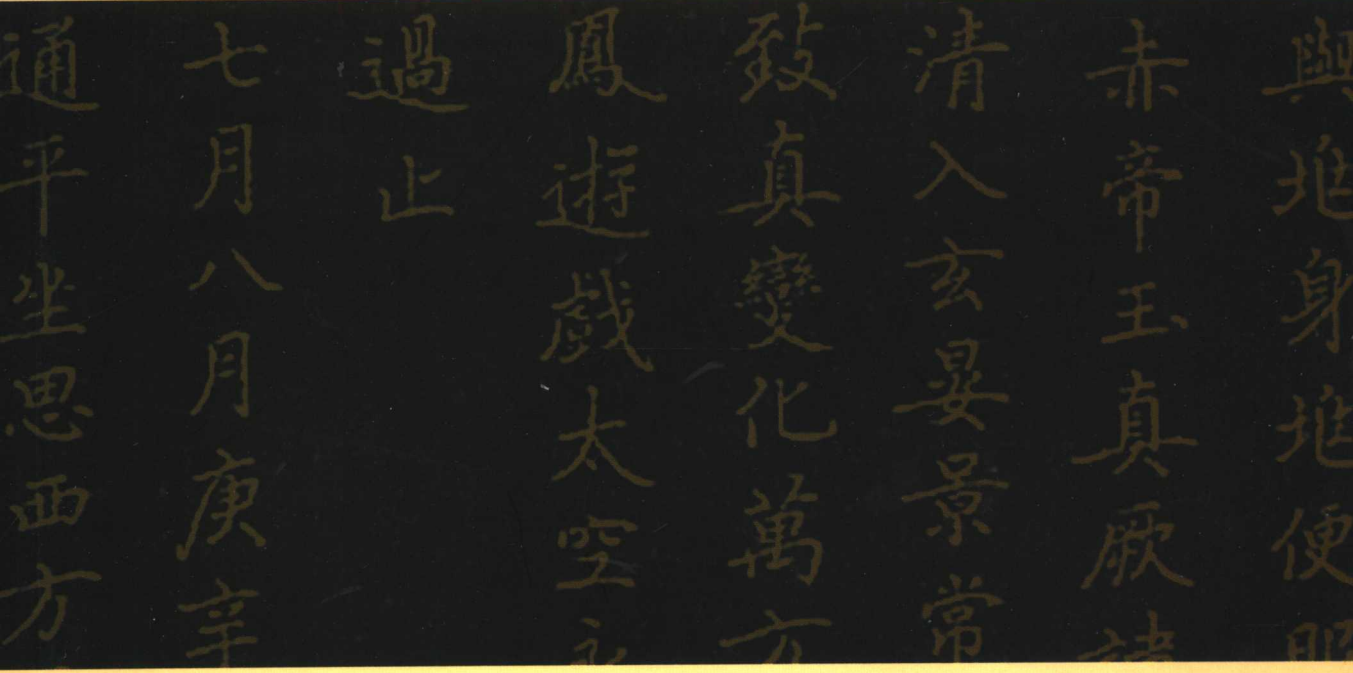 與炁身炁便
赤帝玉真厥諱
清入玄晏景常
致真變化萬方
鳳遊戲太空
過止
七月八月庚辛
通平坐思西方